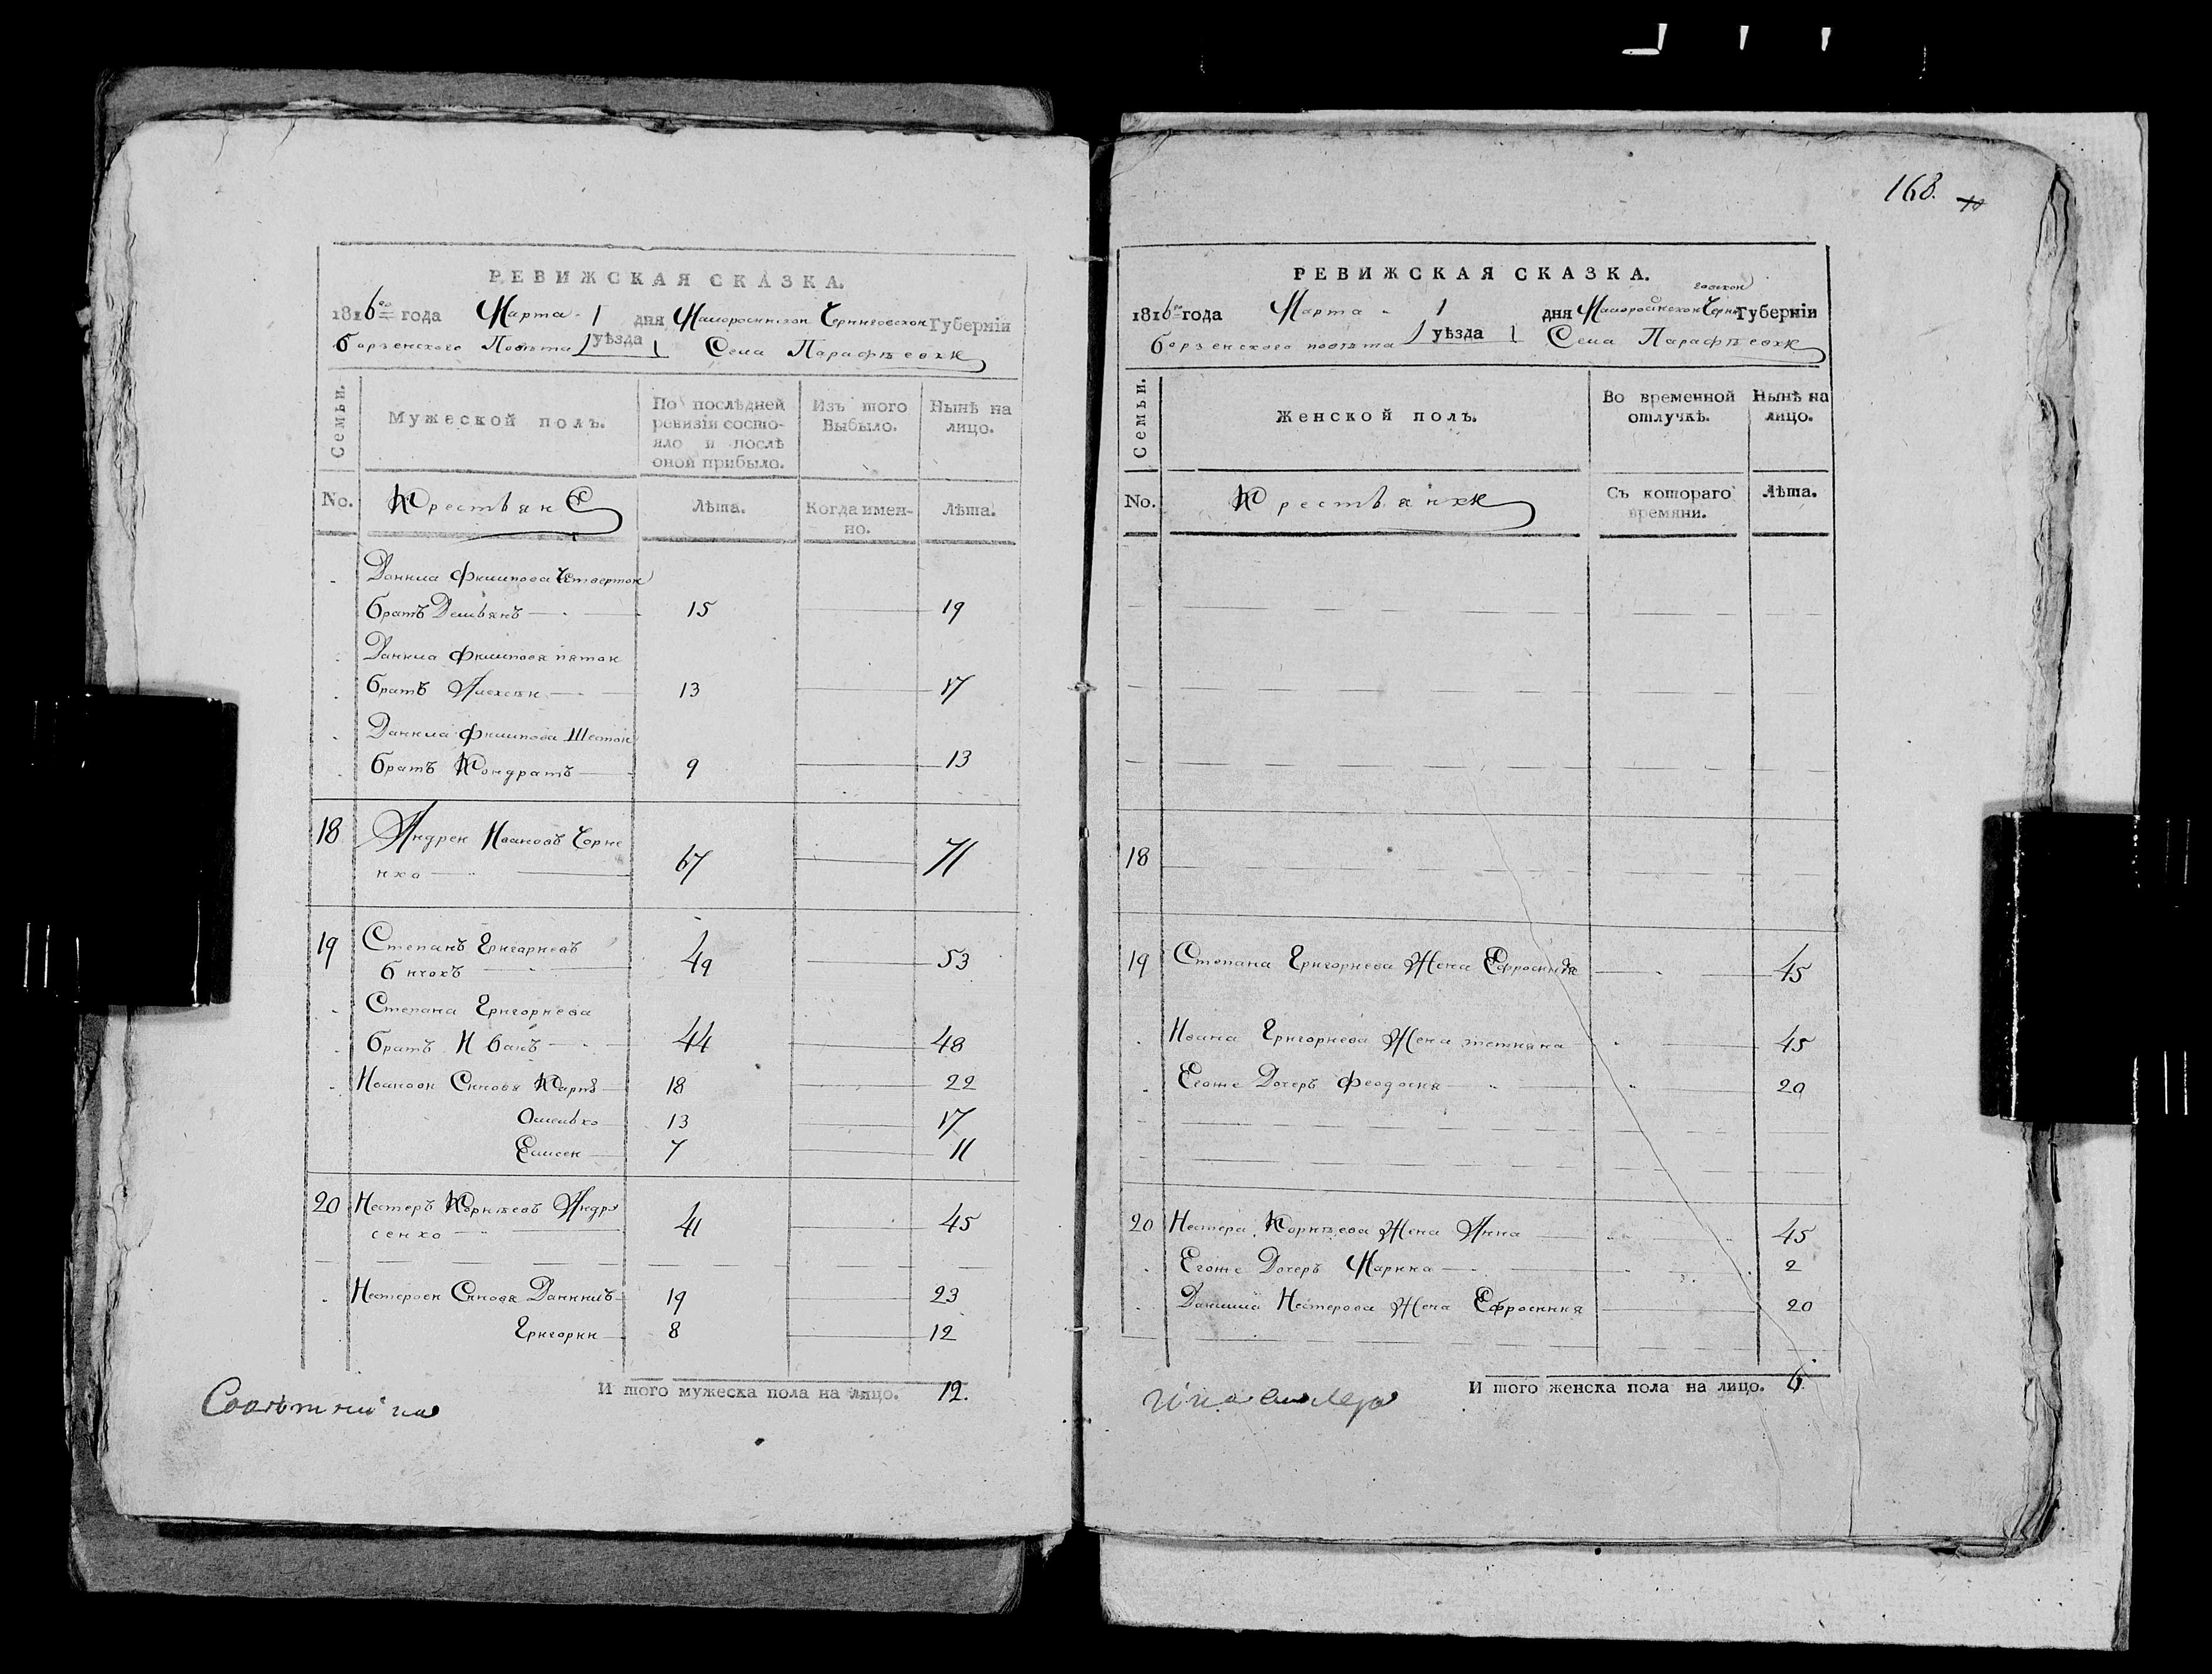 РЕВИЖСКАЯ СКАЗКА.
1816го года Марта 1 дня Малоросийской Черниговской Губерніи
Борзенского Повѣта уѣзда Села Парафѣевки
Семьи.
Мужеской полъ.
По послѣдней ревизіи состояло и послѣ оной прибыло.
Изъ того Выбыло.
Нынѣ на лицо.
No.
Крестьяне
Лѣта.
Когда именно.
Лѣта.
Данила Филипова Четвертой
братъ Демьянъ 15 19
Данила Филипова пятой
братъ Алексѣй 13 17
Данила Филипова Шестой
братъ Кондратъ 9 13
18 Андрей Ивановъ Чорне
нко 67 71
19 Степанъ Григориевъ
бичокъ 49 53
Степана Григориева
братъ Иванъ 44 48
Ивановы Синовя Карпъ 18 22
Омелько 13 17
Елисей 7 11
20 Нестеръ Корнѣевъ Андру
сенко 41 45
Нестеровы Синовя Данилъ 19 23
Григорий 8 12
И того мужеска пола на лицо. 12.
168.
РЕВИЖСКАЯ СКАЗКА.
1816го года Марта 1 дня Малоросийской Черниговской Губерніи
Борзенского повѣта уѣзда Села Парафѣевки
Семьи.
Женской полъ.
Во временной отлучкѣ.
Нынѣ на лицо.
No.
Крестьянки
Съ котораго времяни.
Лѣта.
18
19 Степана Григориева Жена Ефросиния 45
Ивана Григориева Жена тетияна 45
Егоже Дочеръ Феодосия 20
20 Нестера Корнѣева Жена Анна 45
Егоже Дочеръ Марина 2
Данила Нестерова Жена Ефросиния 20
И того женска пола на лицо. 6